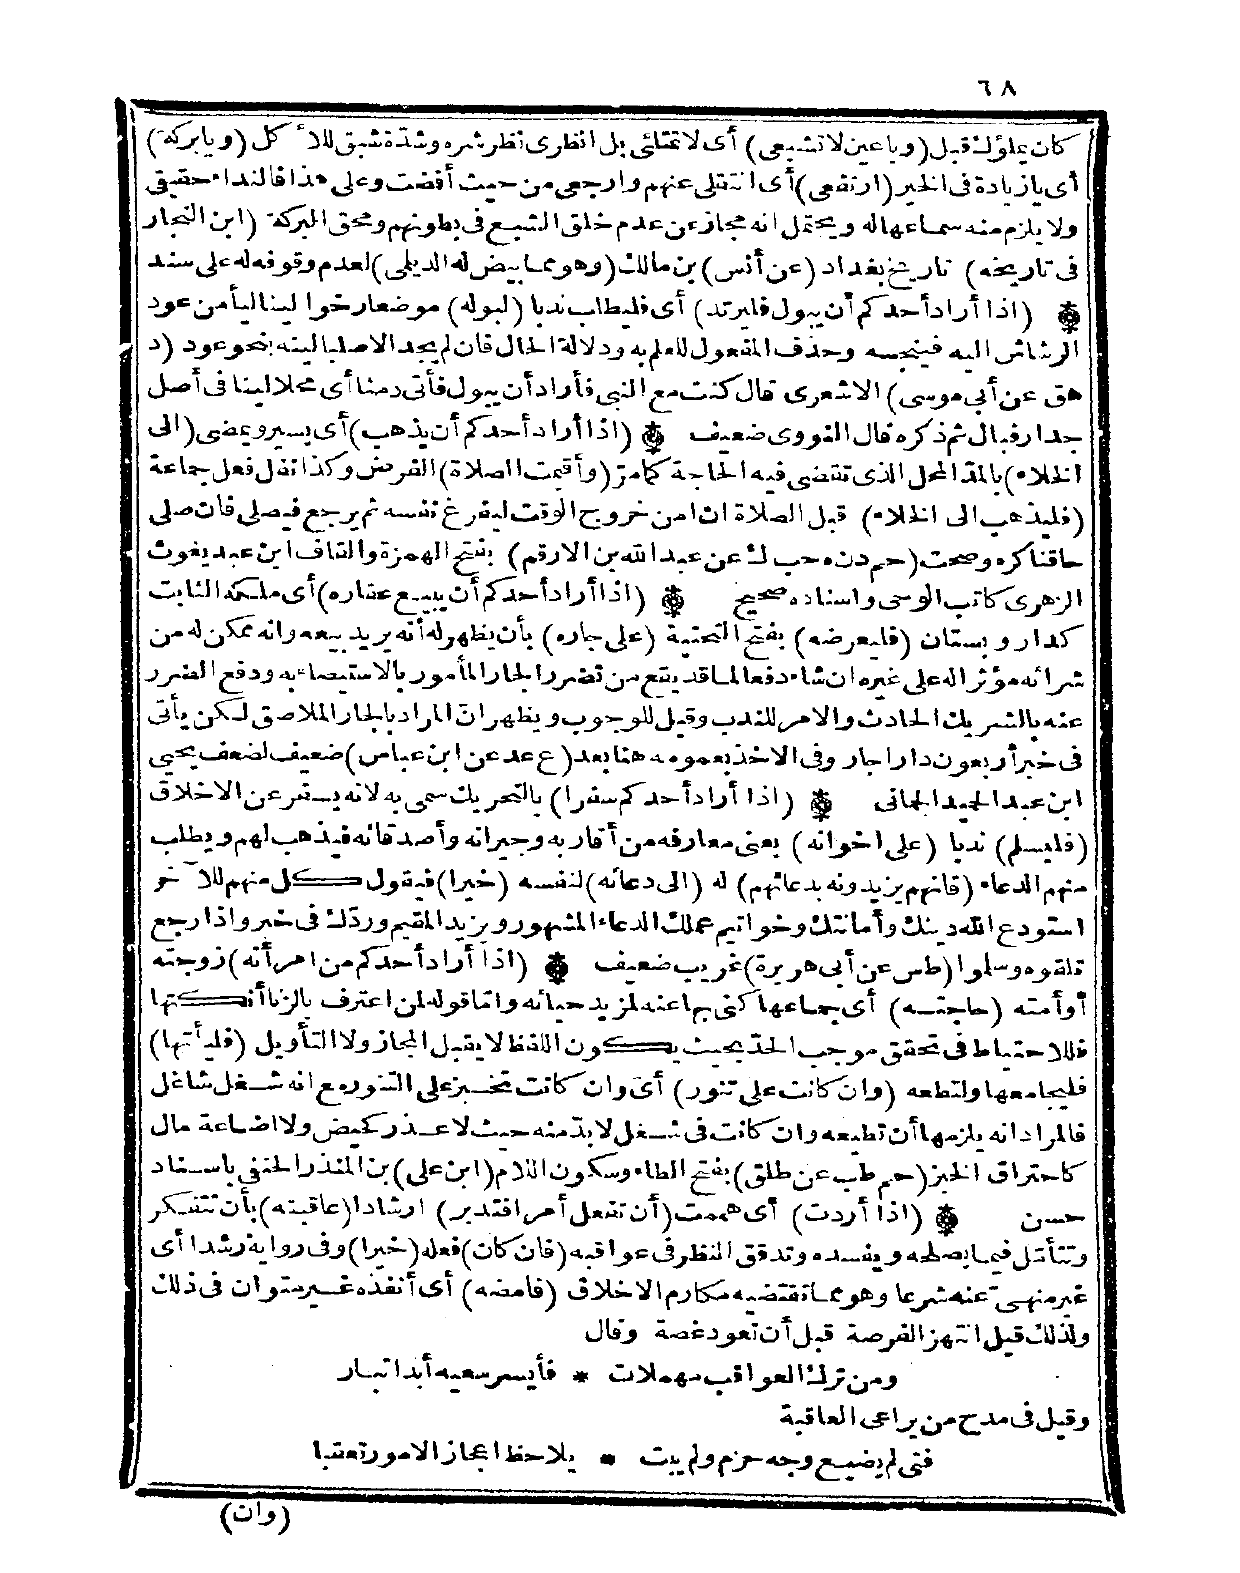 ٦٨
كان يملؤك قبل (ويا عين لا تشبعى) أى لا تمتلئى بل انظرى نظر شره وشدة شبق للأكل (ويا بركة)
أى يا زيادة فى الخير (ارتفعى) أى انتقلى عنهم وارجعى من حيث أفضت وعلى هذا فالنداء حقيقى
ولا يلزم منه سماعها له ويحتمل انه مجاز عن عدم خلق الشبع فى بطونهم ومحق البركة (ابن النجار
فى تاريخه) تاريخ بغداد (عن أنس) بن مالك (وهو مما بيض له الديلمى) لعدم وقوفه له على سند
(اذا أراد أحدكم أن يبول فليرتد) أى فليطلب ندبا (لبوله) موضعا رخوا لينا ليأمن عود
الرشاش اليه فينجسه وحذف المفعول للعلم به ودلالة الحال فان لم يجد الا صلبا لينه بنحو عود (د
هق عن أبى موسى) الاشعرى قال كنت مع النبى فأراد أن يبول فأتى دمثا أى محلا لينا فى أصل
جدار فبال ثم ذكره قال النووى ضعيف (اذا أراد أحدكم أن يذهب) أى يسير ويمضى (الى
الخلاء) بالمد المحل الذى تقضى فيه الحاجة كما مر (وأقيمت الصلاة) الفرض وكذا نفل فعل جماعة
(فليذهب الى الخلاء) قبل الصلاة ان أمن خروج الوقت ليفرغ نفسه ثم يرجع فيصلى فان صلى
حاقنا كره وصحت (حم د ن ه حب ك عن عبد الله بن الارقم) بفتح الهمزة والقاف ابن عبد يغوث
الزهرى كاتب الوحى واسناده صحيح (اذا أراد أحدكم أن يبيع عقاره) أى ملكه الثابت
كدار وبستان (فليعرضه) بفتح التحتية (على جاره) بأن يظهر له أنه يريد بيعه وانه ممكن له من
شرائه مؤثرا له على غيره ان شاء دفعا لما قد يقع من تضرر الجار المأمور بالاستيصاء به ودفع الضرر
عنه بالشريك الحادث والامر للندب وقيل للوجوب ويظهر ان المراد بالجار الملاصق لكن يأتى
فى خبر أربعون دارا جار وفى الاخذ بعمومه هنا بعد (ع عد عن ابن عباس) ضعيف لضعف يحيى
ابن عبد الحميد الحمانى (اذا أراد أحدكم سفرا) بالتحريك سمى به لانه يسفر عن الاخلاق
(فليسلم) ندبا (على اخوانه) يعنى معارفه من أقاربه وجيرانه وأصدقائه فيذهب لهم ويطلب
منهم الدعاء (فانهم يزيدونه بدعائهم) له (الى دعائه) لنفسه (خيرا) فيقول كل منهم للآخر
استودع الله دينك وأمانتك وخواتيم عملك الدعاء المشهور ويزيد المقيم وردك فى خير واذا رجع
تلقوه وسلموا (طس عن أبى هريرة) غريب ضعيف (اذا أراد أحدكم من امرأته) زوجته
أو أمته (حاجته) أى جماعها كنى بها عنه لمزيد حيائه وأما قوله لمن اعترف بالزنا أنكتها
فللاحتياط فى تحقق موجب الحد بحيث يكون اللفظ لا يقبل المجاز ولا التأويل (فليأتها)
فليجامعها ولتطعه (وان كانت على تنور) أى وان كانت تخبز على التنور مع انه شغل شاغل
فالمراد انه يلزمها أن تطيعه وان كانت فى شغل لا بد منه حيث لا عذر كحيض ولا اضاعة مال
كاحتراق الخبز (حم طب عن طلق) بفتح الطاء وسكون اللام (ابن على) بن المنذر الحنفى باسناد
حسن (اذا أردت) أى هممت (أن تفعل أمرا فتدبر) ارشادا (عاقبته) بأن تتفكر
وتتأمل فيما يصلحه ويفسده وتدقق النظر فى عواقبه (فان كان) فعله (خيرا) وفى رواية رشدا أى
غير منهى عنه شرعا وهو مما تقتضيه مكارم الاخلاق (فامضه) أى أنفذه غير متوان فى ذلك
ولذلك قيل انتهز الفرصة قبل أن تعود غصة وقال
ومن ترك العواقب مهملات * فأيسر سعيه أبدا تبار
وقيل فى مدح من يراعى العاقبة
فتى لم يضيع وجه حزم ولم يبت * يلاحظ اعجاز الامور تعقبا
(وان)